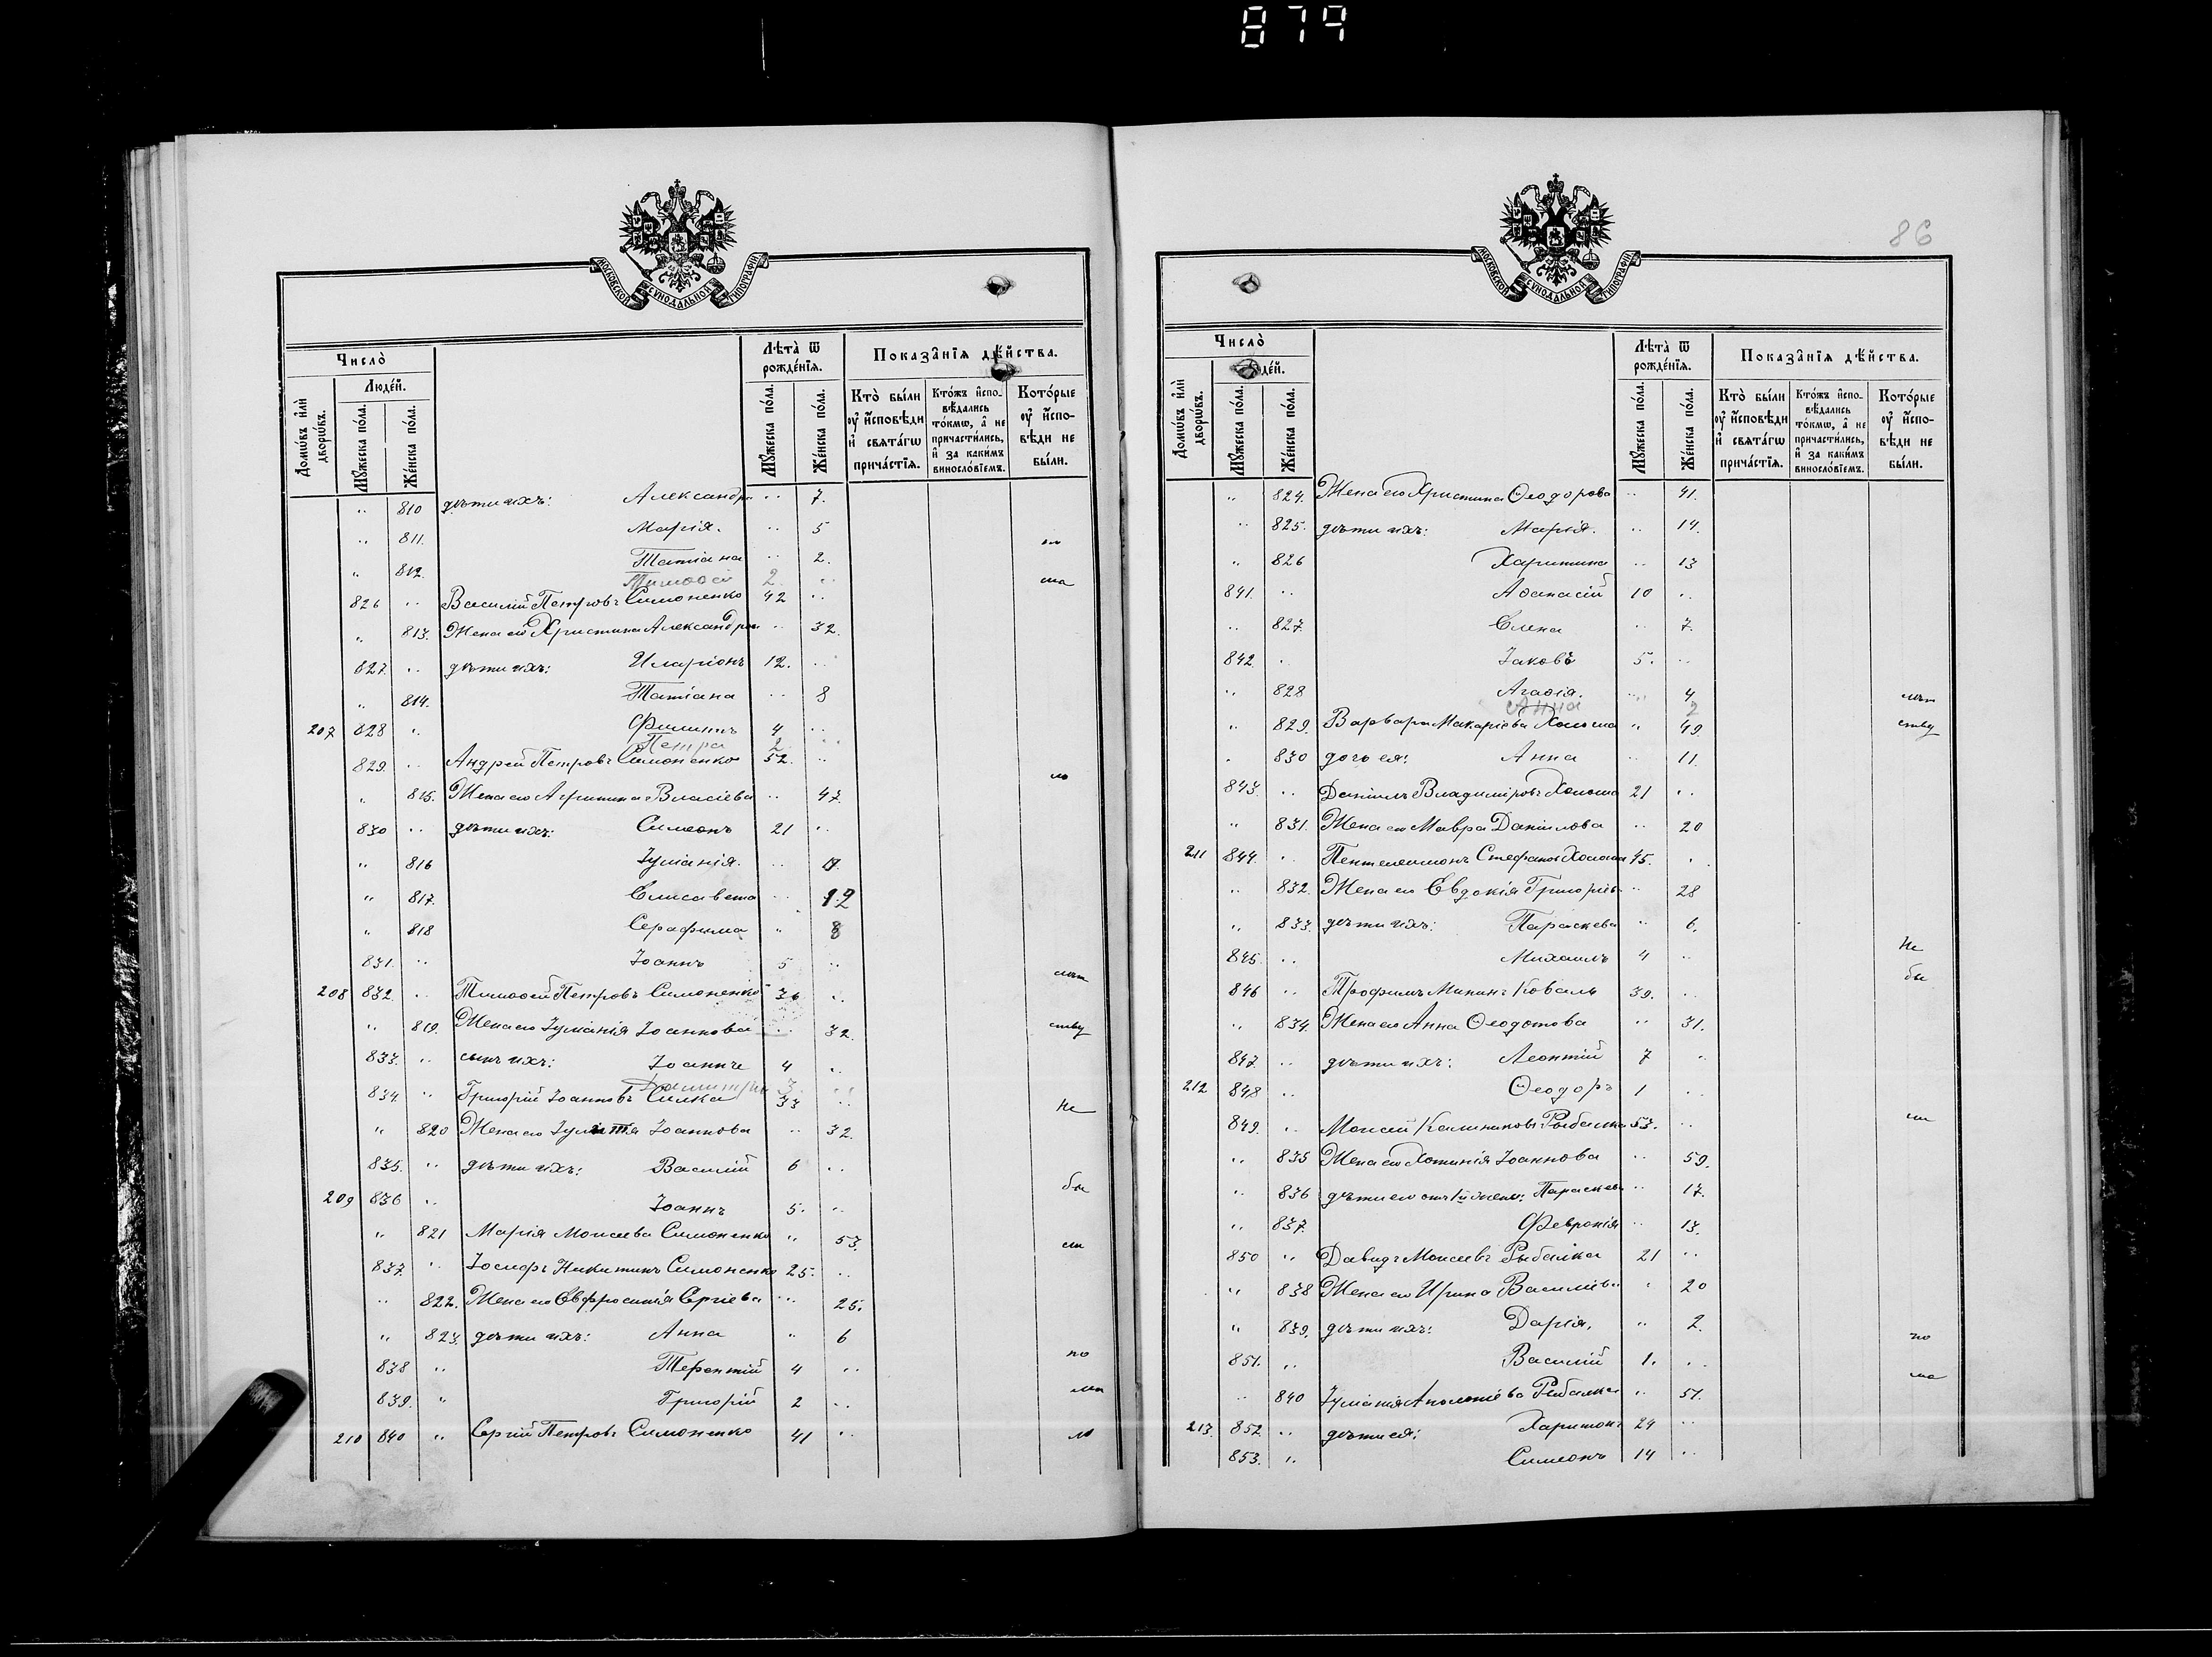 879
МОСКОВСКОЙ СѴНОДАЛЬНОЙ ТИПОГРАФІИ
Число̀
Людей.
Домѡвъ и҆лѝ дворѡвъ.
Мꙋжеска по́ла.
Же́нска по́ла.
Лѣта̀ ѿ рожде́нїѧ.
Мꙋжеска по́ла.
Же́нска по́ла.
Показа̑нїѧ дѣ́йства.
Кто̀ бы́ли оу҆ и҆́сповѣди и҆ свѧта́гѡ прича́стїѧ.
Кто́жъ и҆спо-вѣ́дались то́кмѡ, а҆ не причасти́лись, и҆ за каки́мъ виносло́вїемъ.
Кото́рые оу҆ и҆́спо-вѣди не бы́ли.
" 810 дѣти ихъ: Александра " 7.
" 811. Марія. " 5
" 812. Татіана " 2.
Тимоѳей 2 "
826 " Василій Петровъ Симоненко 42 "
" 813. Жена его Христина Александрова " 32.
827. " дѣти ихъ: Иларіонъ 12. "
" 814. Татіана " 8
207 828 " Филиппъ 4 "
Петра 2 "
829. " Андрей Петровъ Симоненко 52. "
" 815. Жена его Агрипина Власіева " 47.
830 " дѣти ихъ: Симеонъ 21 "
" 816 Іуліанія. "
" 817. Елисавета " 12
" 818 Серафима " 8
831. " Іоаннъ 5 "
208 832. " Тимоѳей Петровъ Симоненко 36 "
" 819. Жена его Іуліанія Іоаннова " 32.
833. " сынъ ихъ: Іоаннъ 4 "
Димитрій 3 "
834. " Григорій Іоанновъ Силка 33 "
Не
" 820 Жена его Іулитта Іоаннова " 32.
835. " дѣти ихъ: Василій 6 "
бы
209 836 " Іоаннъ 5. "
" 821 Марія Моисеева Симоненко " 53.
837. " Іосифъ Никитинъ Симоненко 25. "
" 822. Жена его Евфросинія Сергіева " 25.
" 823. дѣти ихъ: Анна " 6
838 " Терентій 4 "
по
839. " Григорій 2 "
210 840 " Сергій Петровъ Симоненко 41 "
86
МОСКОВСКОЙ СѴНОДАЛЬНОЙ ТИПОГРАФІИ
Число̀
Людей.
Домѡвъ и҆лѝ дворѡвъ.
Мꙋжеска по́ла.
Же́нска по́ла.
Лѣта̀ ѿ рожде́нїѧ.
Мꙋжеска по́ла.
Же́нска по́ла.
Показа̑нїѧ дѣ́йства.
Кто̀ бы́ли оу҆ и҆́сповѣди и҆ свѧта́гѡ прича́стїѧ.
Кто́жъ и҆спо-вѣ́дались то́кмѡ, а҆ не причасти́лись, и҆ за каки́мъ виносло́вїемъ.
Кото́рые оу҆ и҆́спо-вѣди не бы́ли.
" 824. Жена его Христина Ѳеодорова " 41.
" 825. дѣти ихъ: Марія. " 14.
" 826 Харитина " 13
841. " Аѳанасій 10 "
" 827. Елена " 7.
842. " Іаковъ 5. "
" 828 Агаѳія. " 4
Анна 2
" 829. Варвара Макаріева " 49.
ству
" 830 дочь ея: Анна " 11.
843. " Даніилъ Владиміровъ 21 "
" 831. Жена его Мавра Даніилова " 20
211 844. " Пантелеимонъ Стефановъ "
" 832. Жена его Евдокія Григорьева " 28
" 833. дѣти ихъ: Параскева " 6.
Не
845. " Михаилъ 4 "
бы
846 " Трофимъ Мининъ Коваль 39. "
" 834. Жена его Анна Ѳеодотова " 31.
847. " дѣти ихъ: Леонтій 7 "
212 848 " Ѳеодоръ 1 "
849. " Моисей Калиниковъ Рыбалка 53. "
" 835 Жена его Фотинія Іоаннова " 59.
" 836 дѣти его отъ 1й жены: Параскева " 17.
" 837. Февронія " 13.
850 " Давидъ Моисеевъ Рыбалка 21 "
" 838 Жена его Ирина Василіева " 20
" 839. дѣти ихъ: Дарія. " 2.
по
851. " Василій 1. "
" 840 Іуліанія Рыбалка " 51.
213. 852 " дѣти ея: Харитонъ 24 "
853. " Симеонъ 14 "